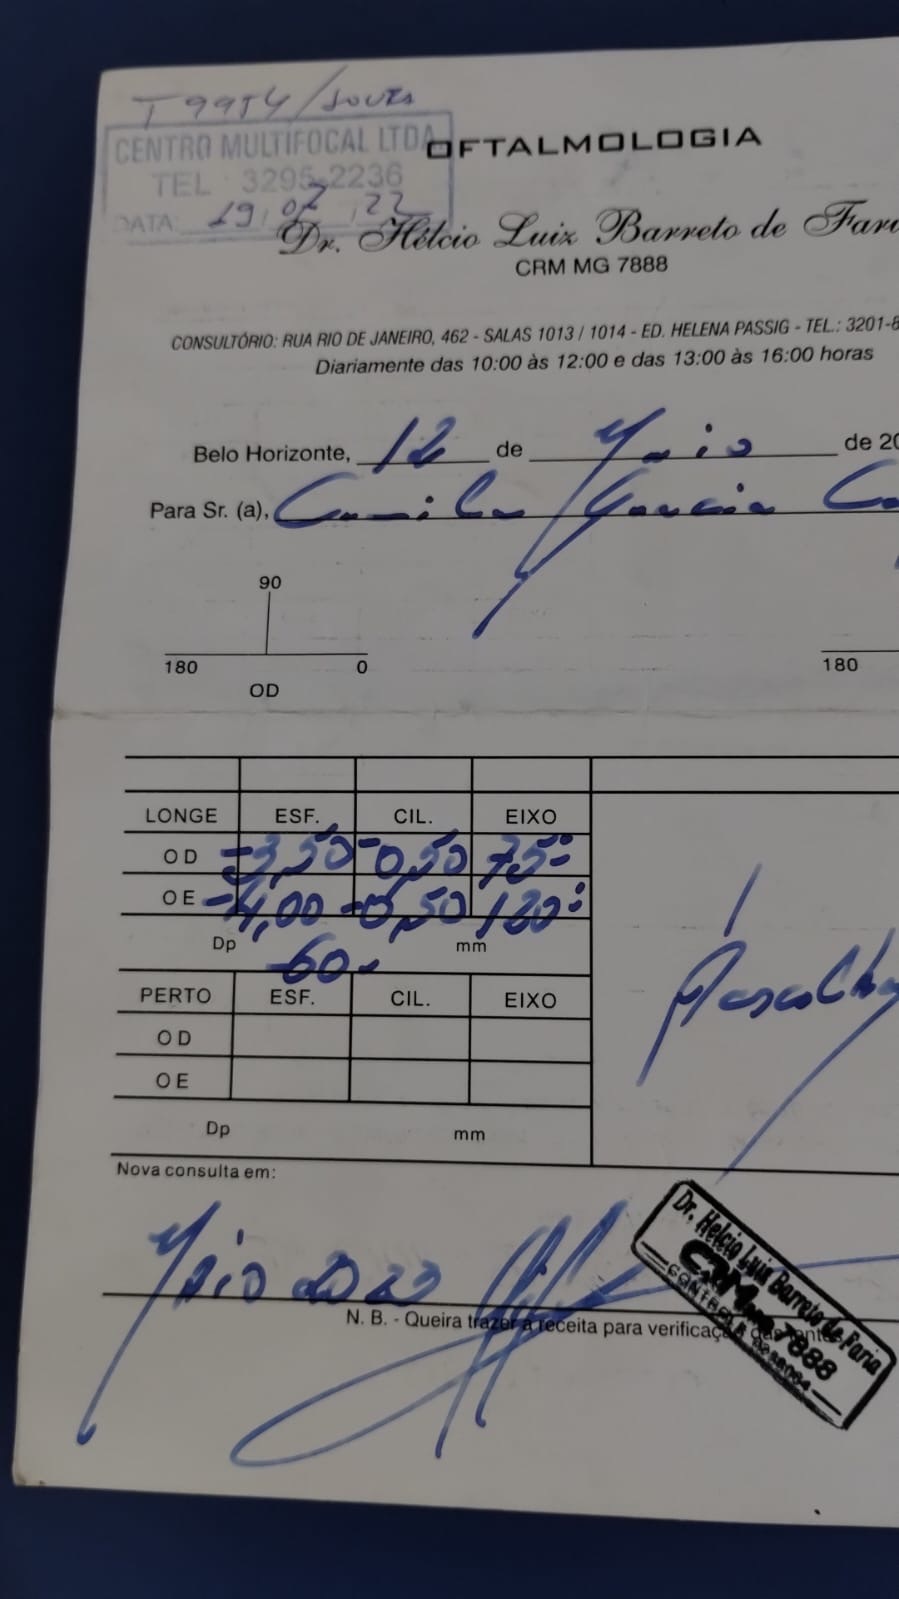 T 9954/
CENTRO MULTIFOCAL LTDA
TEL 3295-2236
DATA: 19/07/22
OFTALMOLOGIA
Dr. Hélcio Luiz Barreto de Faria
CRM MG 7888
CONSULTÓRIO: RUA RIO DE JANEIRO, 462 - SALAS 1013 / 1014 - ED. HELENA PASSIG - TEL.: 3201-
Diariamente das 10:00 às 12:00 e das 13:00 às 16:00 horas
Belo Horizonte, 12 de Maio de 20
Para Sr. (a), Camila Garcia
90
180 0 180
OD
LONGE ESF. CIL. EIXO
OD -3,50 -0,50 75º
OE -4,00 -0,50 120º
Dp 60 mm
PERTO ESF. CIL. EIXO
OD
OE
Dp mm
Nova consulta em:
Maio
N. B. - Queira trazer a receita para verificação das lentes
Dr. Helcio Luiz Barreto de Faria
CRM MG 7888